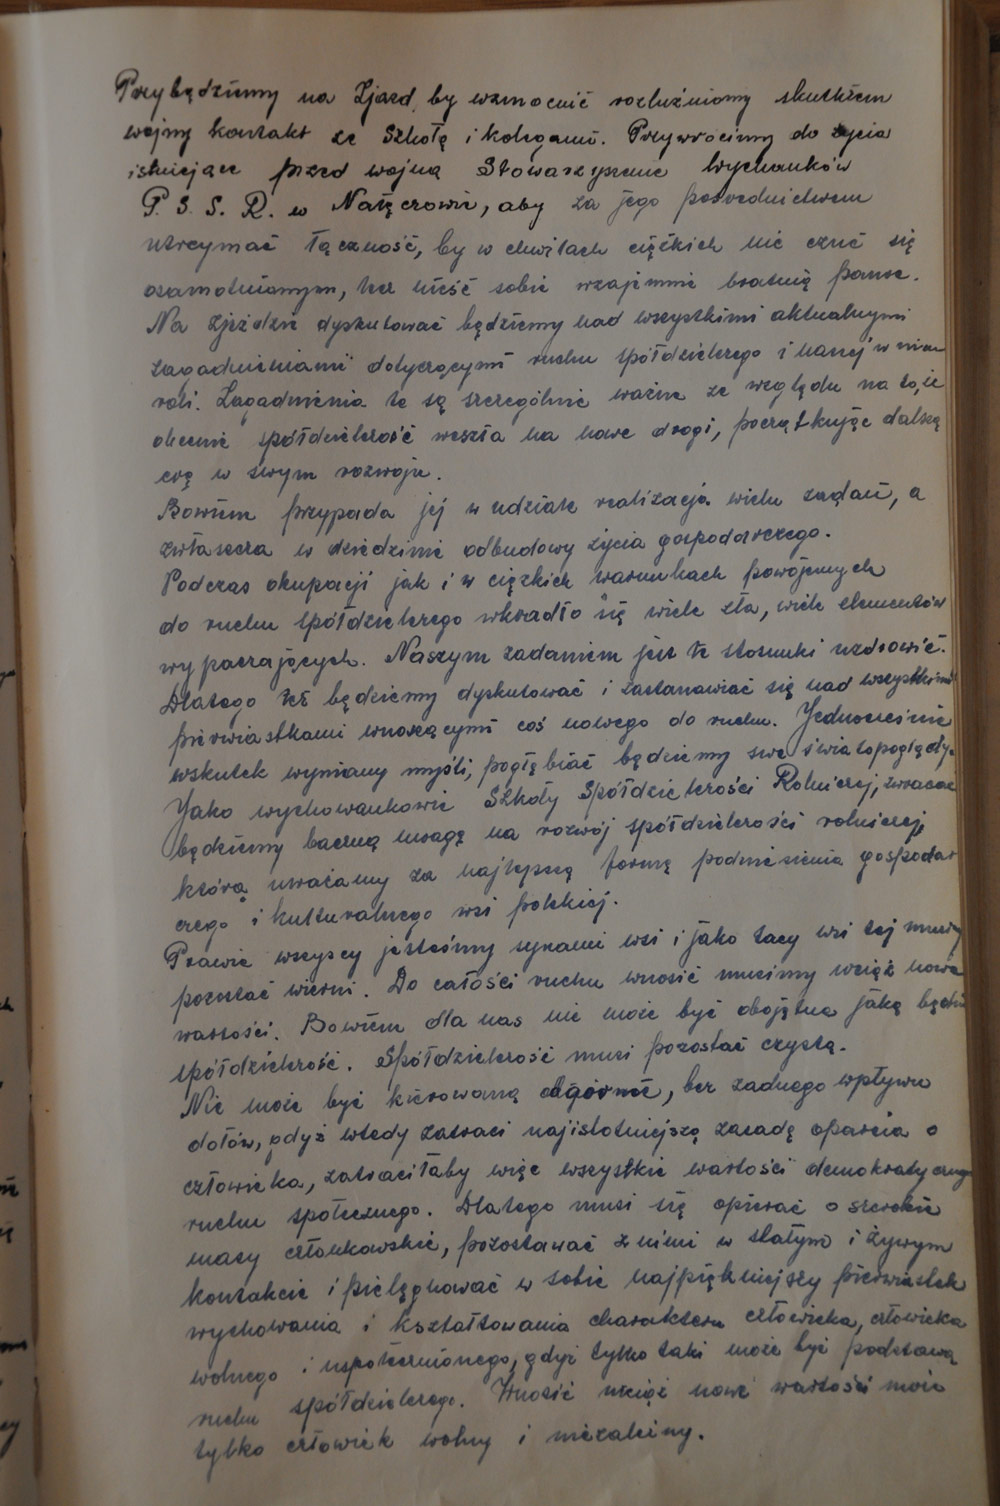 Przybędziemy na Zjazd, by wzmocnić rozluźniony skutkiem
wojny kontakt ze Szkołą i kolegami. Przywrócimy do życia
istniejące przed wojną Stowarzyszenie Wychanków
P. S. S. R. w Nałęczowie, aby za jego pośrednictwem
utrzymać łączność, by w chwilach ciężkich nie czuć się
osamotnionym, lecz nieść sobie wzajemnie bratnią pomoc.
Na Zjeździe dyskutować będziemy nad wszystkimi aktualnymi
zagadnieniami dotyczącymi ruchu spółdzielczego i naszej w nim
roli. Zagadnienia te są szczególnie ważne ze względu na to, że
obecnie spółdzielczość weszła na nowe drogi, początkując dalszą
erę w swym rozwoju.
Bowiem przypada jej w udziale realizacja wielu zadań, a
zwłaszcza w dziedzinie odbudowy życia gospodarczego.
Podczas okupacji jak i w ciężkich warunkach powojennych
do ruchu spółdzielczego wkradło się wiele zła, wiele elementów
wypaczających. Naszym zadaniem jest te stosunki uzdrowić.
Dlatego też będziemy dyskutować i zastanawiać się nad wszystkimi
pierwiastkami wnoszącymi coś nowego do ruchu. Jednocześnie
wskutek wymiany myśli, pogłębiać będziemy swe światopoglądy.
Jako wychowankowie Szkoły Spółdzielczości Rolniczej, zwracać
będziemy baczną uwagę na rozwój spółdzielczości rolniczej,
którą uważamy za najlepszą formę podniesienia gospodar
czego i kulturalnego wsi polskiej.
Prawie wszyscy jesteśmy synami wsi i jako tacy wsi tej musimy
pozostać wierni. Do całości ruchu wnosić musimy wciąż nowe
wartości. Bowiem dla nas nie może być obojętne jaką będzie
spółdzielczość. Spółdzielczość musi pozostać czystą.
Nie może być kierowaną odgórnie, bez żadnego wpływu
dołów, gdyż wtedy zatraci najistotniejszą zasadę oparcia o
człowieka, zatraciłaby więc wszystkie wartości demokratycznego
ruchu społecznego. Dlatego musi się opierać o szerokie
masy członkowskie, pozostawać z nimi w stałym i żywym
kontakcie i pielęgnować w sobie najpiękniejszy pierwiastek
wychowania i kształtowania charakteru człowieka, człowieka
wolnego i uspołecznionego, gdyż tylko taki może być podstawą
ruchu spółdzielczego. Wnosić wciąż nowe wartości może
tylko człowiek wolny i niezależny.